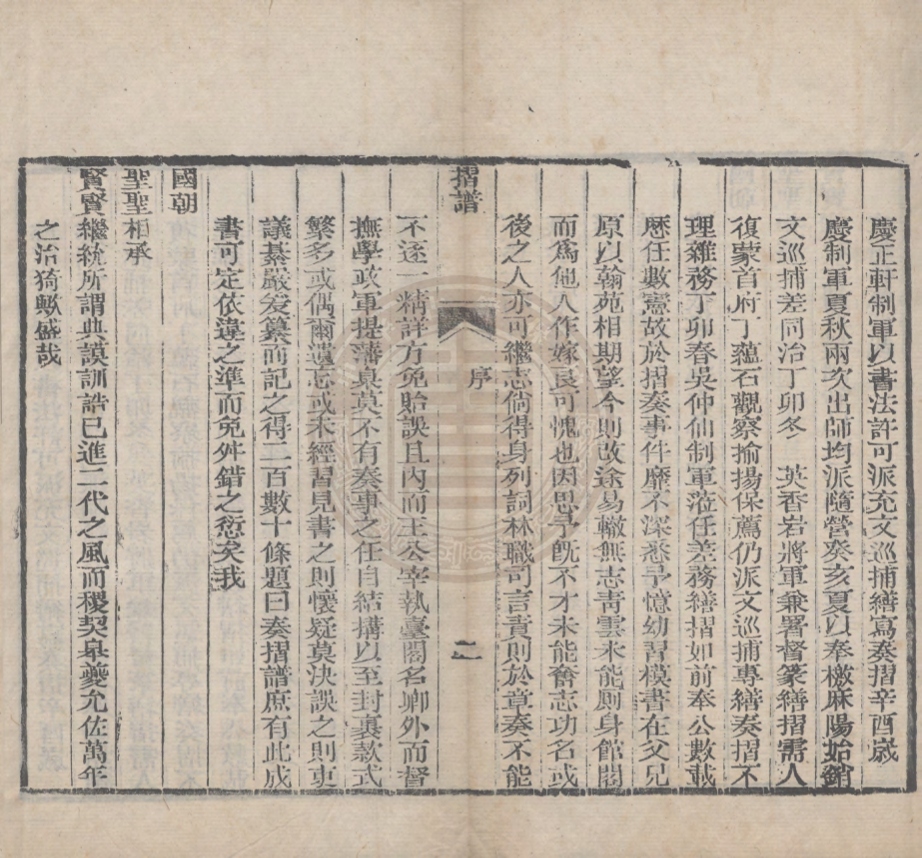 慶正軒制軍以書法許可派充文巡捕繕寫奏摺辛酉歲
慶制軍夏秋兩次出師均派隨營癸亥夏以奉檄麻陽始銷
文巡捕差同治丁卯冬　英香岩將軍兼署督篆繕摺需人
復蒙首府丁蘊石觀察揄揚保薦仍派文巡捕專繕奏摺不
理雜務丁卯春吳仲仙制軍蒞任差務繕摺如前奉公數載
歷任數憲故於摺奏事件靡不深悉予憶幼習模書在父兄
原以翰苑相期望今則改途易轍無志靑雲未能厠身館閣
而爲他人作嫁良可愧也因思予旣不才未能奮志功名或
後之人亦可繼志倘得身列詞林職司言責則於章奏不能
摺譜
序
二
不逐一精詳方免貽誤且內而王公宰執臺閣名卿外而督
撫學政軍提藩臬莫不有奏事之任自結搆以至封裹款式
繁多或偶爾遺忘或未經習見書之則懷疑莫決誤之則吏
議綦嚴爰纂而記之得二百數十條題曰奏摺譜庶有此成
書可定依違之準而免舛錯之愆矣我
國朝
聖聖相承
賢賢繼統所謂典謨訓誥已進二代之風而稷契臯夔允佐萬年
之治猗歟盛哉